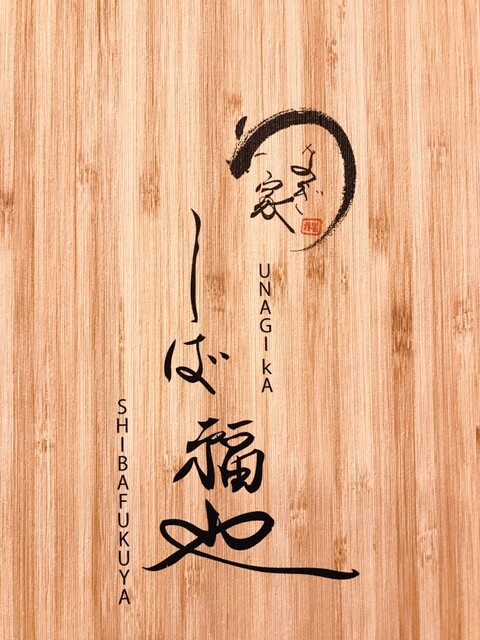 うなぎ家
UNAGIkA
しば福也
SHIBAFUKUYA